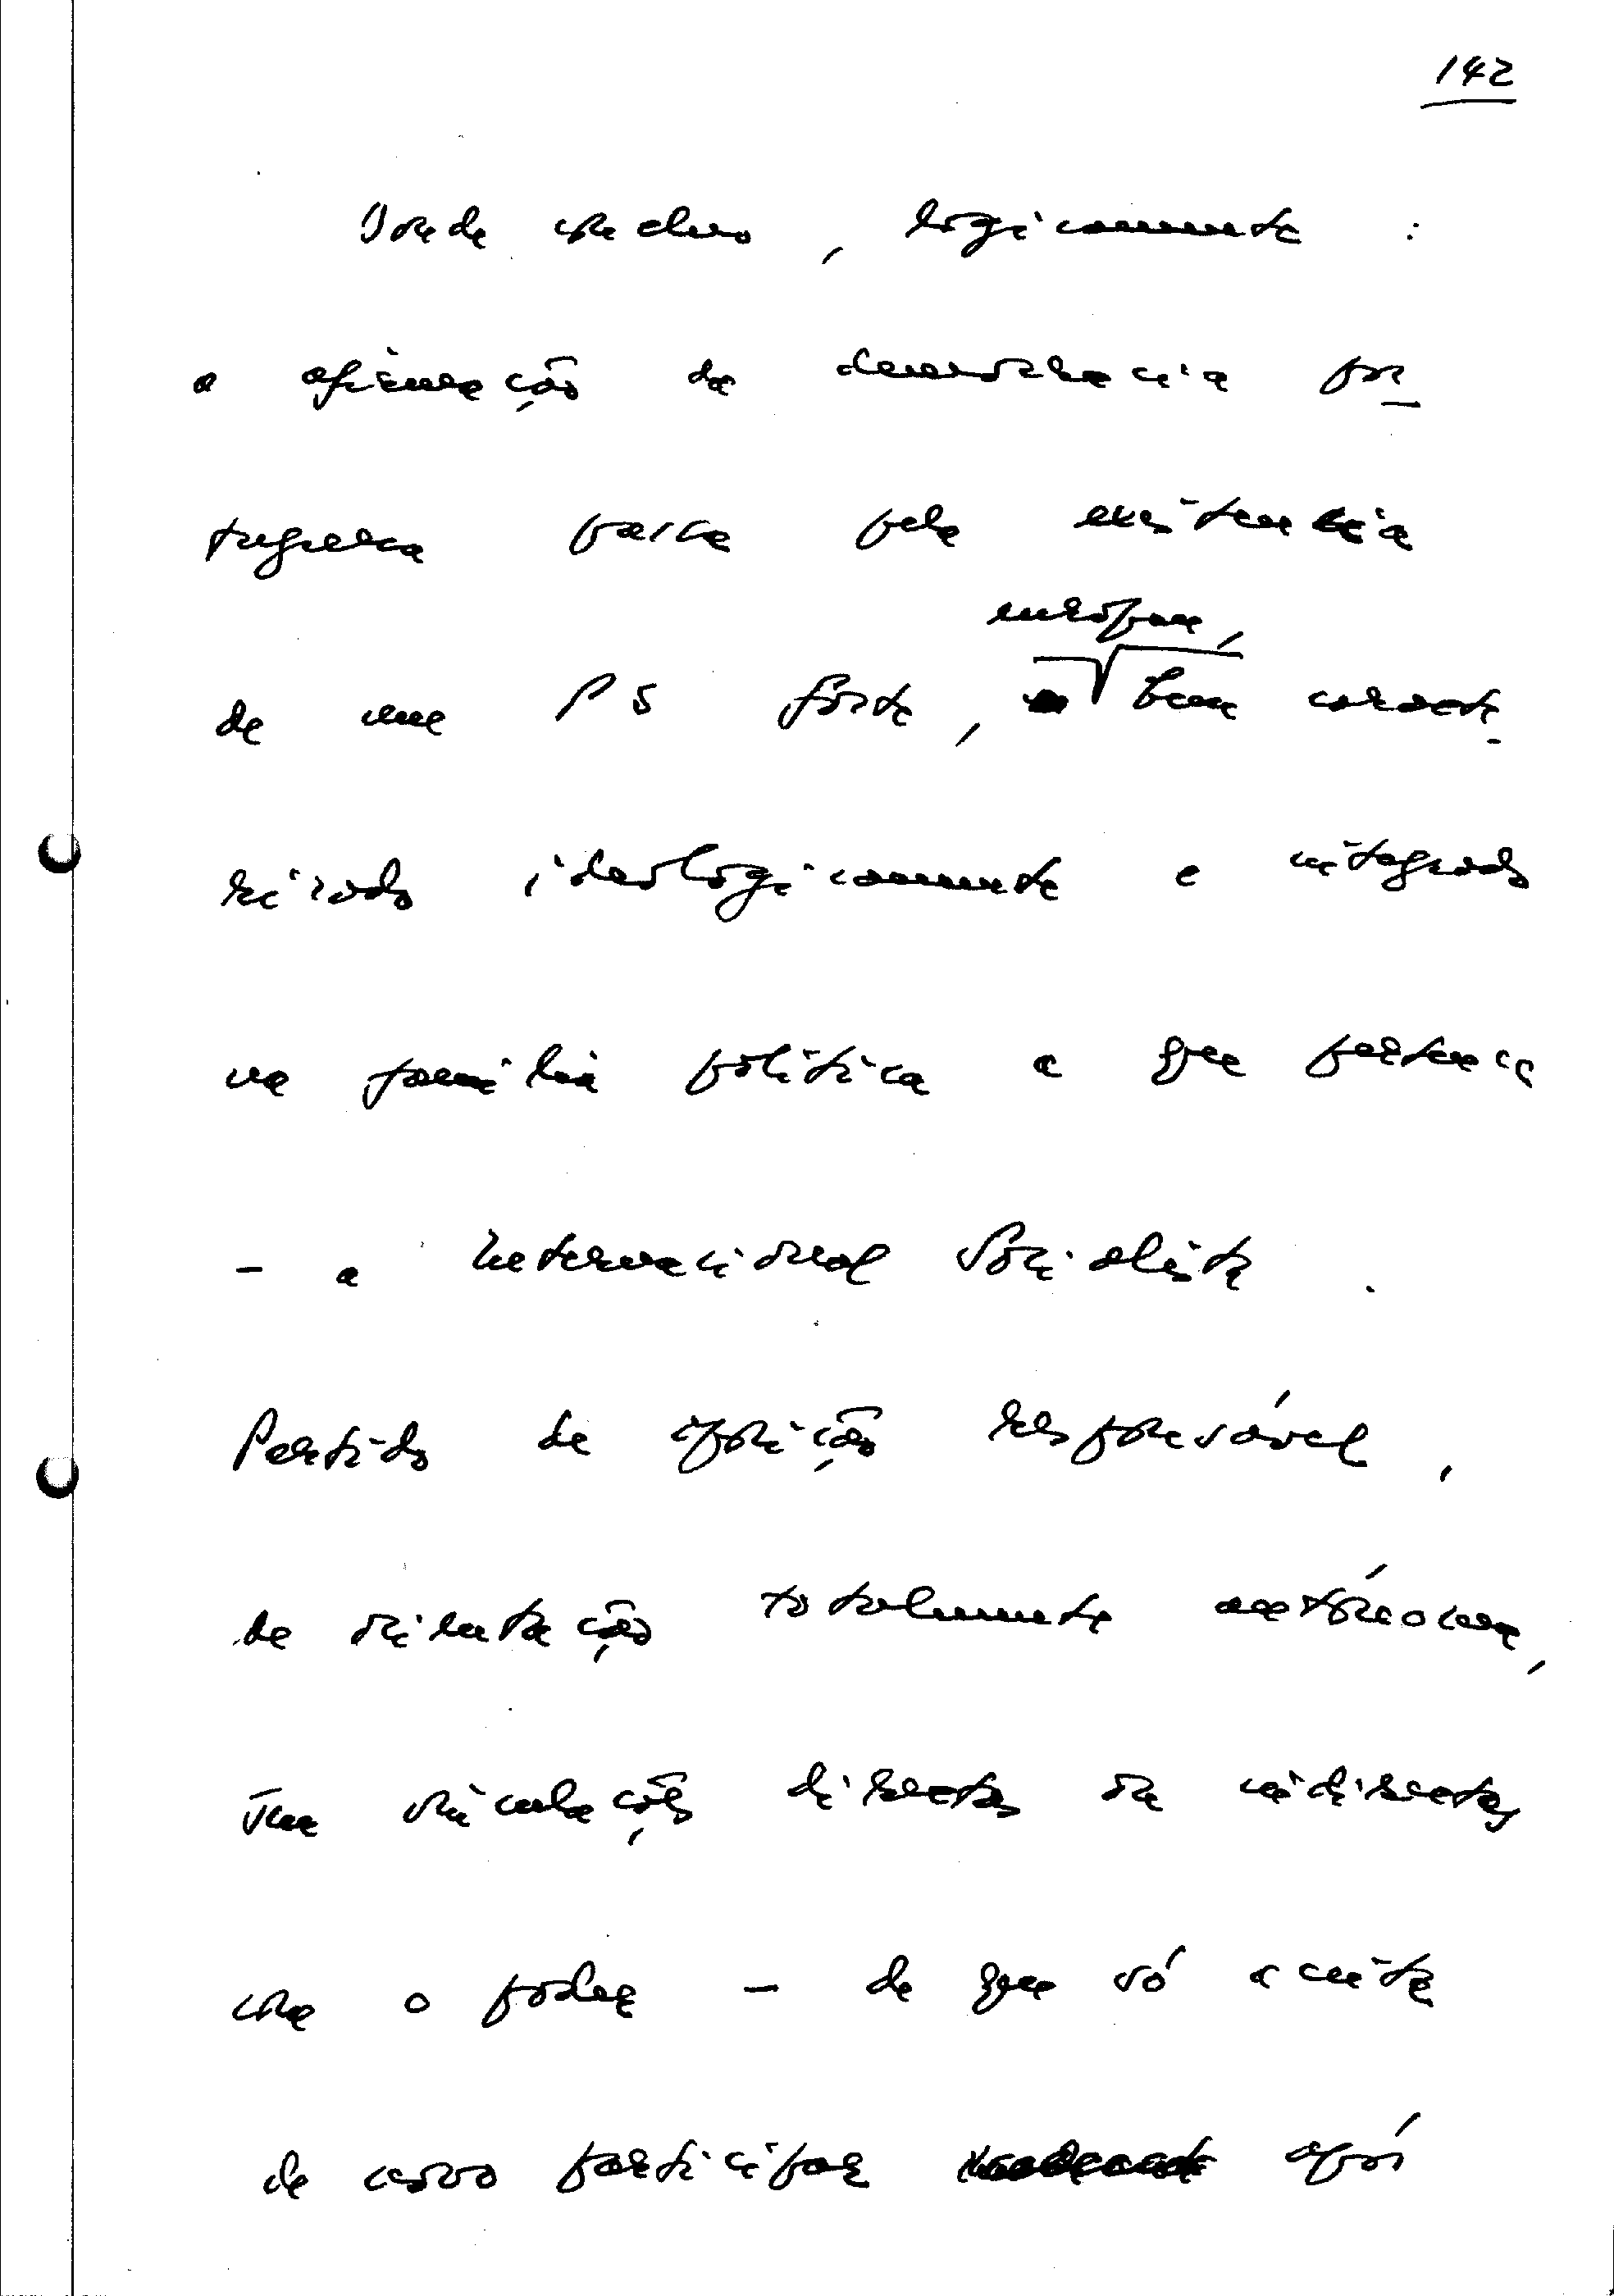 142
Donde concluo, lògicamente :
a afirmação da democracia por
tuguesa passa pela existência
europeu,
de um PS forte, bem caracte-
rizado ideològicamente e integrado
na família política a que pertence
- a Internacional Socialista.
Partido de oposição responsável,
de orientação totalmente autónoma,
sem vinculações directas ou indirectas
com o poder - de que só aceita
de novo participar após